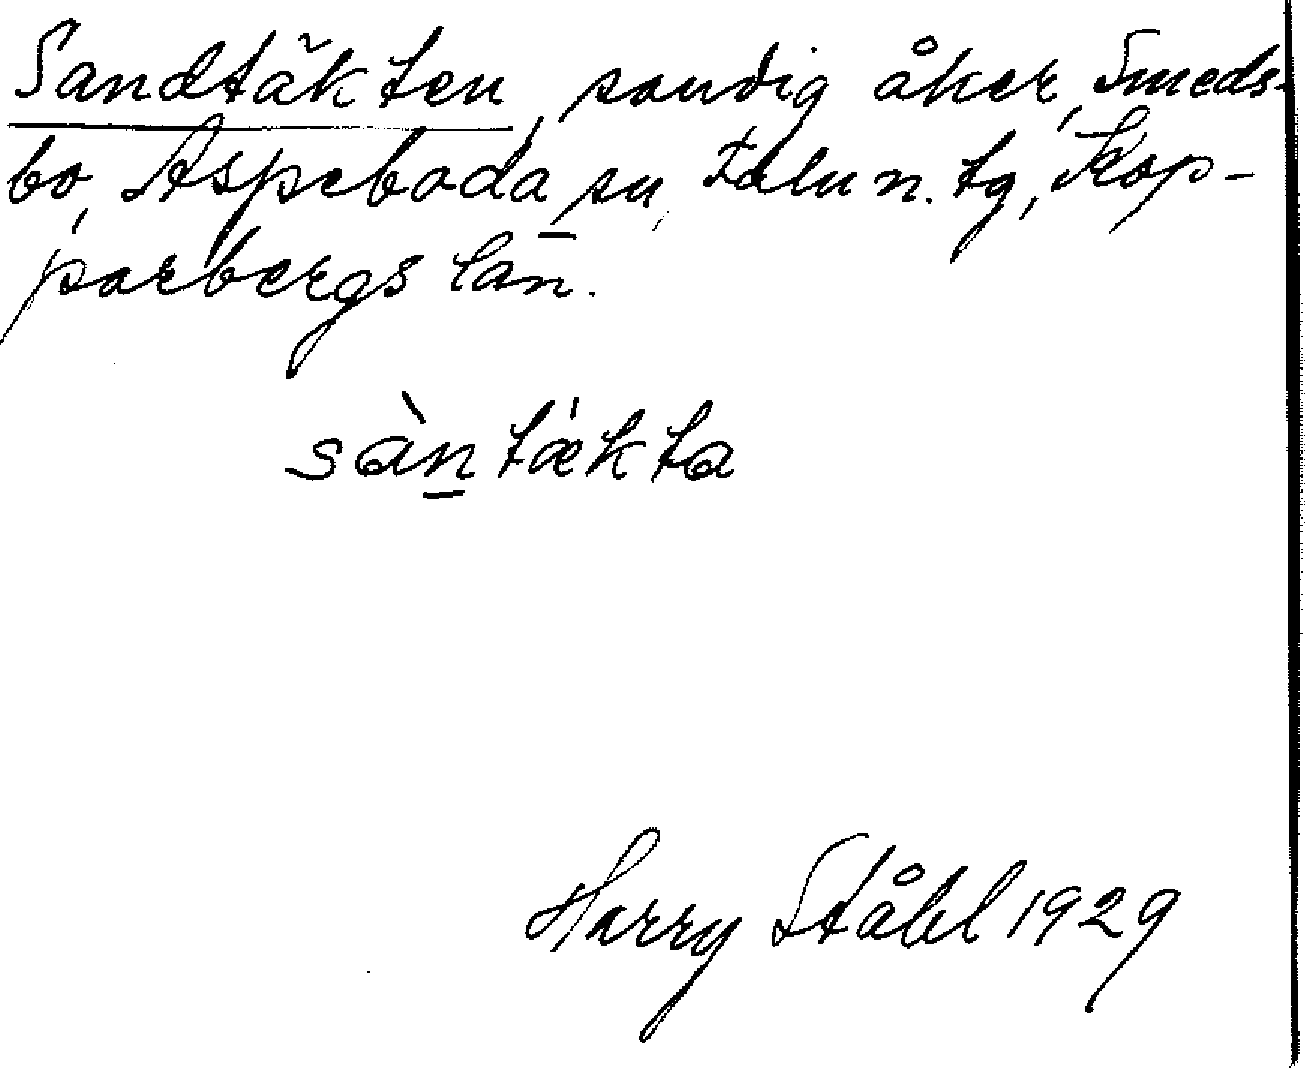 Sandtäkten, sandig åker, Smeds-
bo, Aspeboda sn, Falu n. tg, Kop-
parbergs län.
sàn̠tǽkta
Harry Ståhl 1929